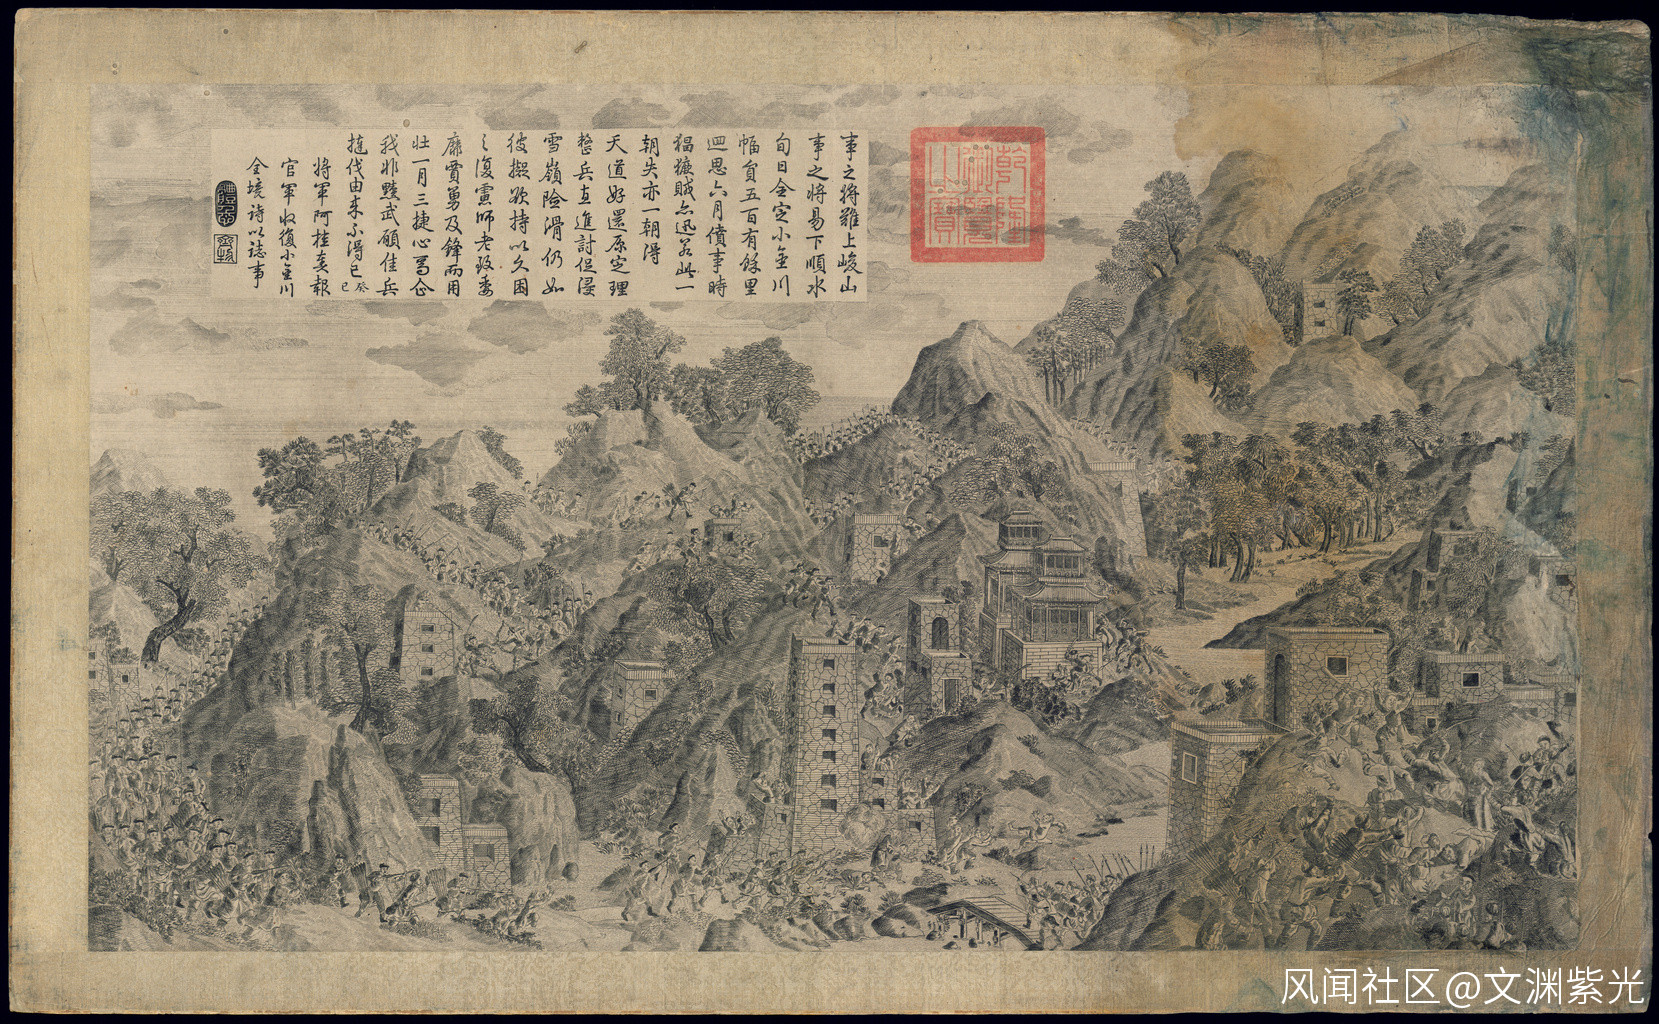 事之將難上峻山
事之將易下順水
旬日全定小金川
幅員五百有餘里
迴思六月僨事時
猖獗賊亦迅若此一
朝失亦一朝得
天道好還原定理
整兵直進討促浸
雪嶺險滑仍如
彼擬欲持以久困
之復慮師老致委
靡賈勇及鋒而用
壯一月三捷心焉企
我非黷武願佳兵
撻伐由來不得已 癸巳
將軍阿桂奏報
官軍收復小金川
全境詩以誌事
乾隆御覽之寶
風聞社区@文渊紫光